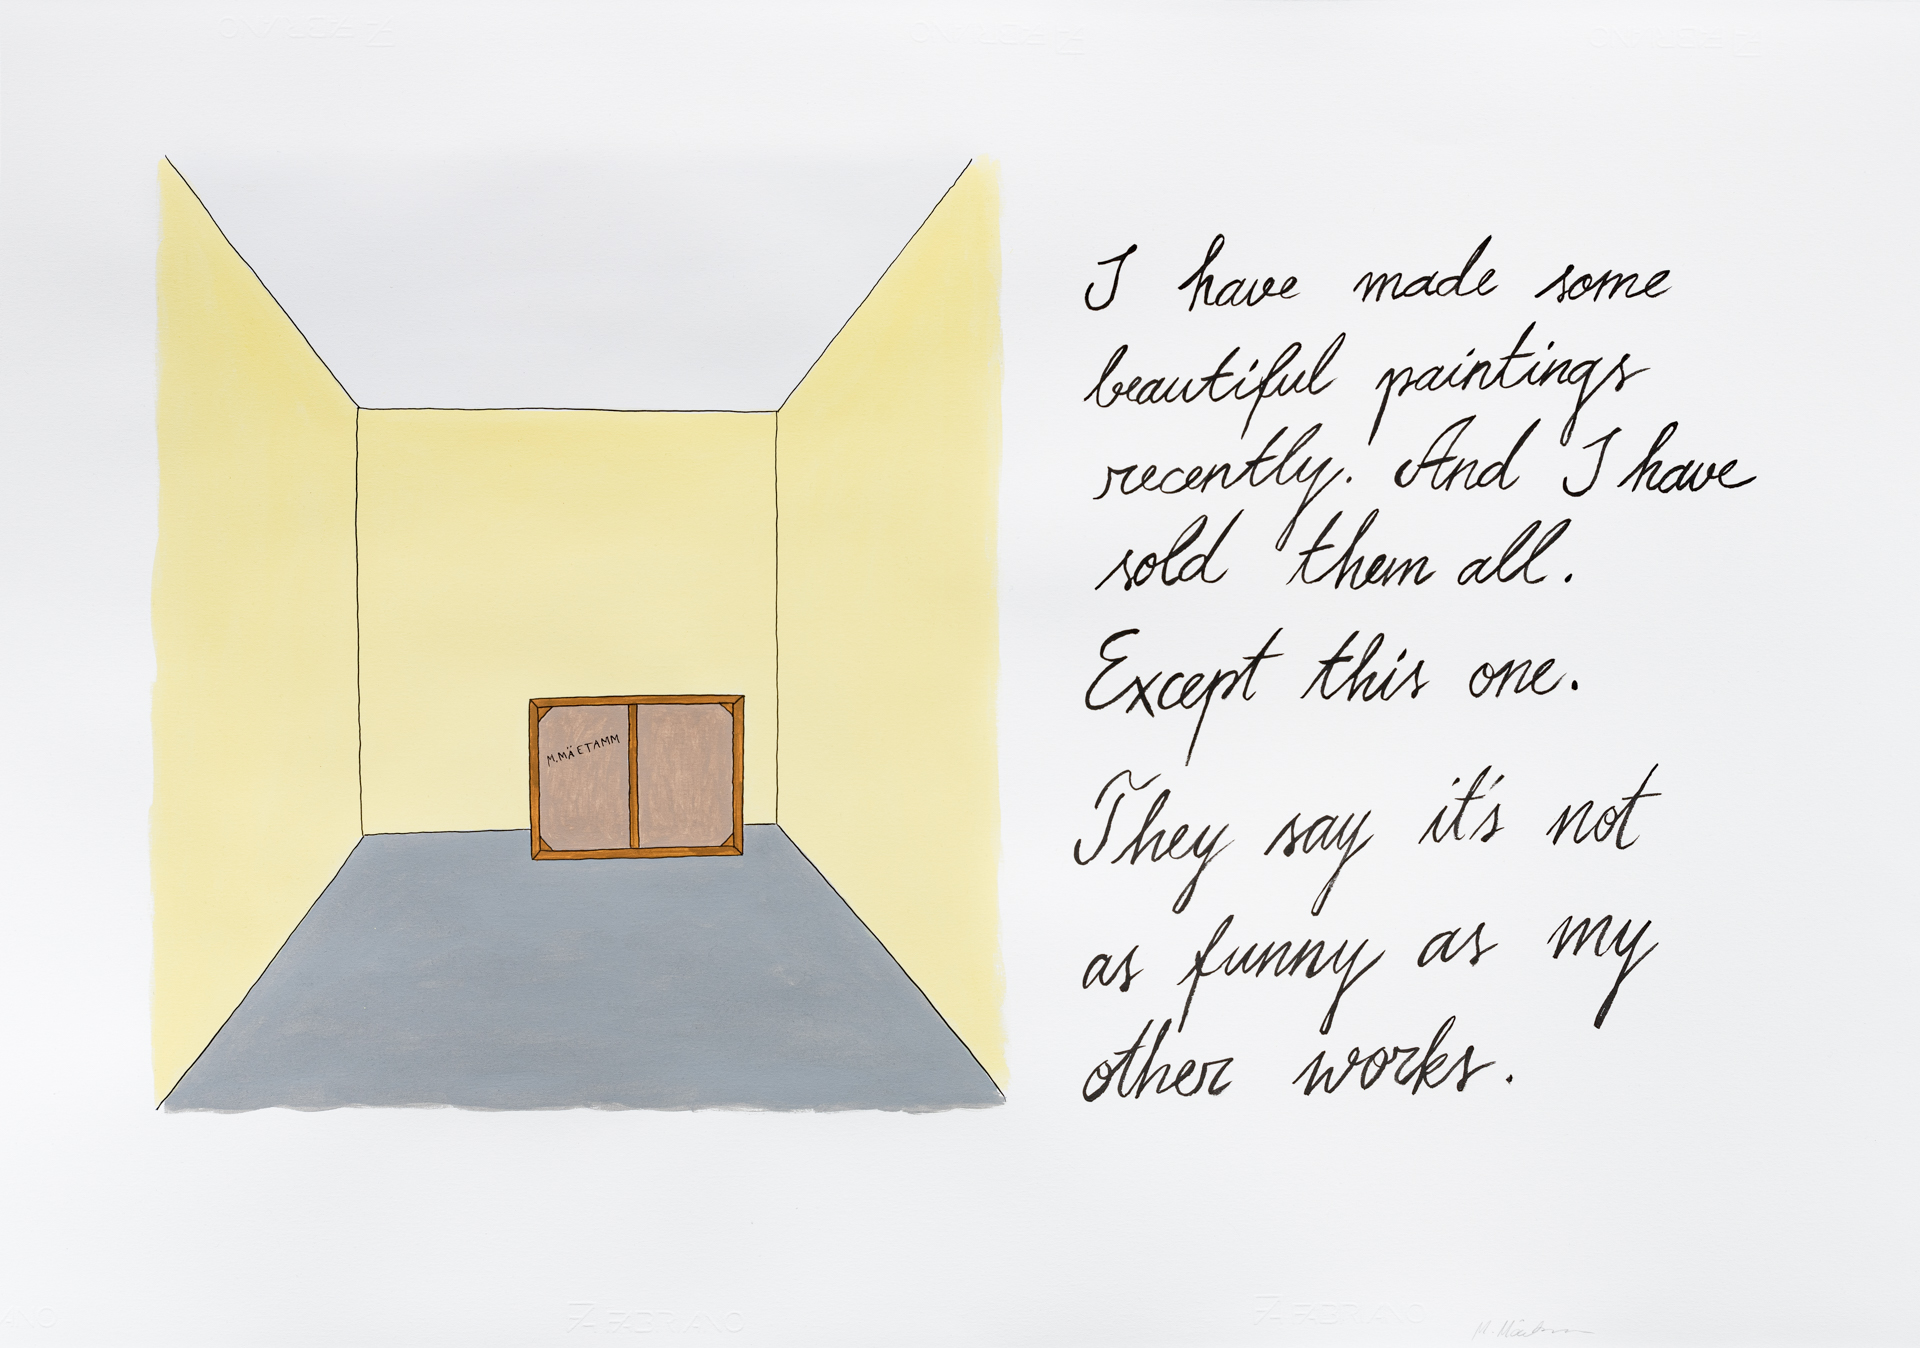 FABRIANO
FABRIANO
FABRIANO
I have made some
beautiful paintings
recently. And I have
sold them all.
Except this one.
They say it's not
as funny as my
other works.
M. MÄETAMM
FABRIANO
FABRIANO